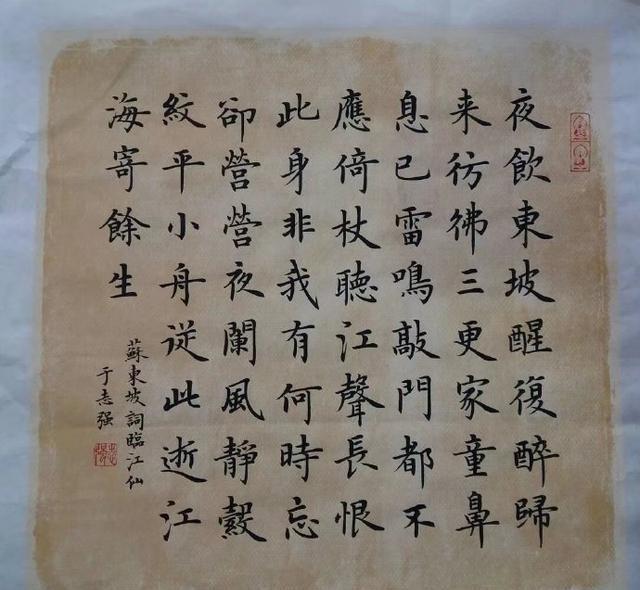 夜飲東坡醒復醉歸
来彷彿三更家童鼻
息已雷鳴敲門都不
應倚杖聽江聲長恨
此身非我有何時忘
卻營營夜闌風靜縠
紋平小舟從此逝江
海寄餘生
蘇東坡詞臨江仙
于志强